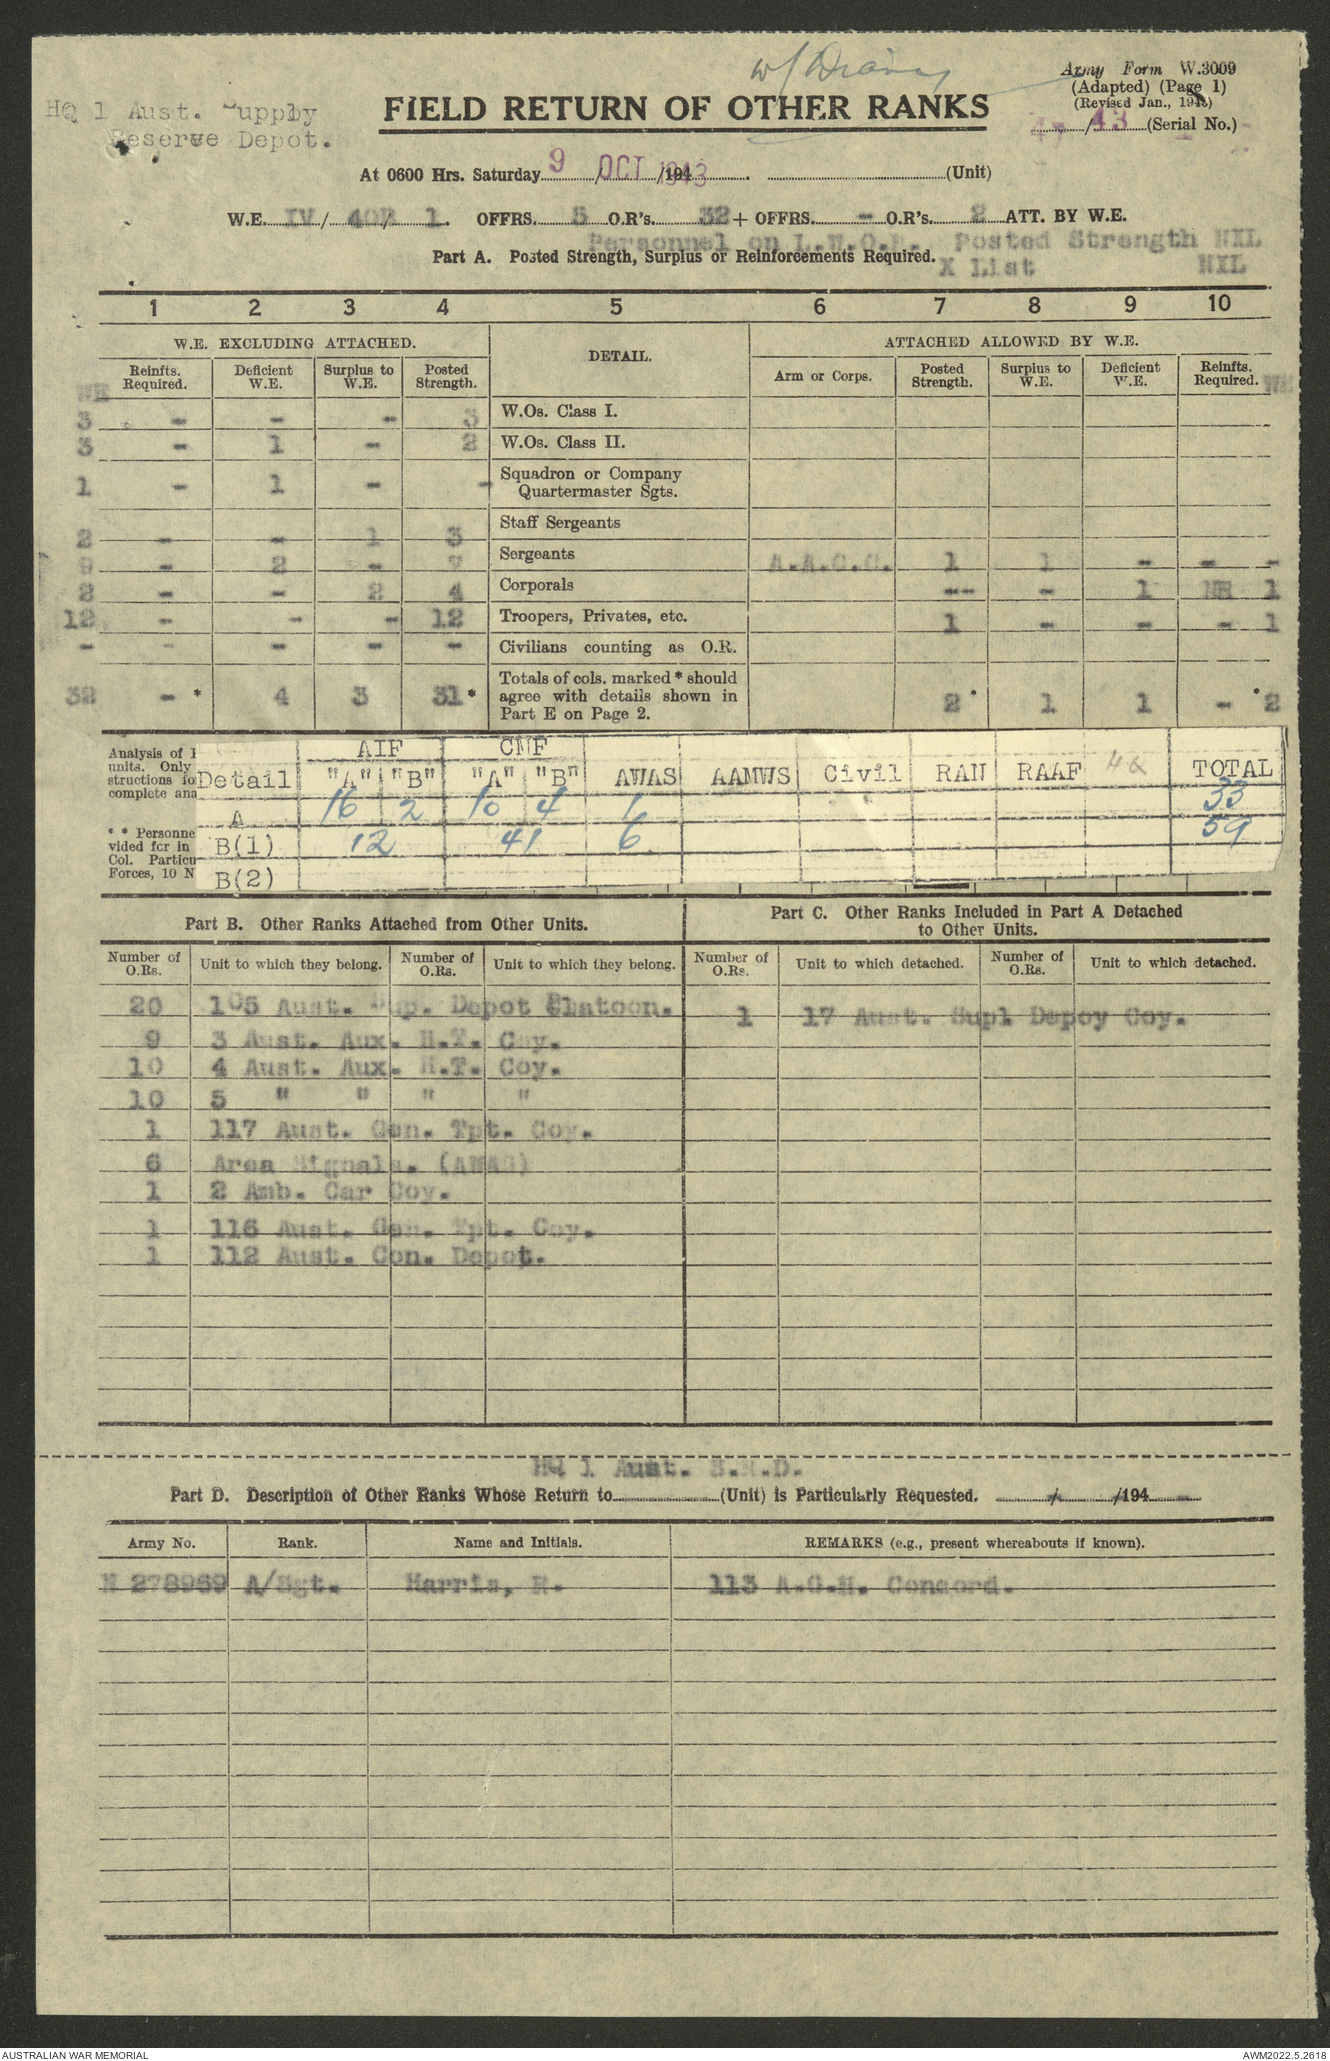 Army Form W.3009
(Adapted) (Page 1)
(Revised Jan., 1943)
/43 (Serial No.)
HQ 1 Aust. Supply
Reserve Depot.
FIELD RETURN OF OTHER RANKS
At 0600 Hrs. Saturday 9 / OCT /1943 (Unit)
W.E. IV / 40B / 1. OFFRS. 5 O.R's. 32 + OFFRS. - O.R's. 2 ATT. BY W.E.
Personnel on L.W.O.P. Posted Strength NIL
Part A. Posted Strength, Surplus or Reinforcements Required.
X List NIL
1 2 3 4 5 6 7 8 9 10
W.E. EXCLUDING ATTACHED. DETAIL. ATTACHED ALLOWED BY W.E.
WE Reinfts. Required. Deficient W.E. Surplus to W.E. Posted Strength. Arm or Corps. Posted Strength. Surplus to W.E. Deficient W.E. Reinfts. Required. WE
3 - - - 3 W.Os. Class I.
3 - 1 - 2 W.Os. Class II.
1 - 1 - - Squadron or Company
Quartermaster Sgts.
2 - - 1 3 Staff Sergeants
9 - 2 - 7 Sergeants A.A.C.C. 1 1 - - -
2 - - 2 4 Corporals -- 1 1
12 - - - 12 Troopers, Privates, etc. 1 - - - 1
- - - - - Civilians counting as O.R.
32 - * 4 3 31* Totals of cols. marked * should
agree with details shown in
Part E on Page 2. 2 * 1 1 - * 2
Analysis of
units. Only
structions fo
complete ana
* * Personne
vided for in
Col. Particu
Forces, 10 N
AIF CMF
Detail "A" "B" "A" "B" AWAS AAMWS Civil RAN RAAF TOTAL
A 16 2 10 4 1 33
B(1) 12 41 6 59
B(2)
Part B. Other Ranks Attached from Other Units.
Part C. Other Ranks Included in Part A Detached
to Other Units.
Number of O.Rs. Unit to which they belong. Number of O.Rs. Unit to which they belong. Number of O.Rs. Unit to which detached. Number of O.Rs. Unit to which detached.
20 105 Aust. Sup. Depot Platoon. 1 17 Aust. Supl Depoy Coy.
9 3 Aust. Aux. H.T. Coy.
10 4 Aust. Aux. H.T. Coy.
10 5 " " " "
1 117 Aust. Gen. Tpt. Coy.
6 Area Signals. (AWAS)
1 2 Amb. Car Coy.
1 116 Aust. Gen. Tpt. Coy.
1 112 Aust. Con. Depot.
HQ 1 Aust. S.R.D.
Part D. Description of Other Ranks Whose Return to (Unit) is Particularly Requested. / /194
Army No. Rank. Name and Initials. REMARKS (e.g., present whereabouts if known).
N 278969 A/Sgt. Harris, R. 113 A.G.H. Concord.
AUSTRALIAN WAR MEMORIAL AWM2022.5.2618